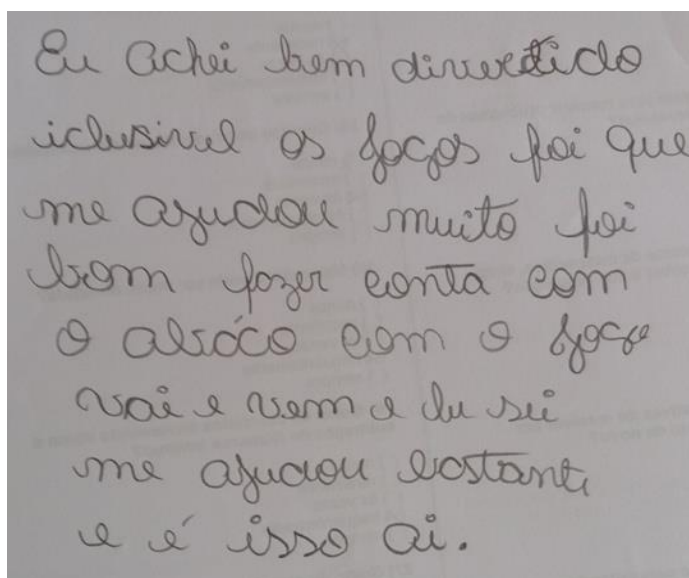 Eu Achei bem divertido
iclusivel os jogos foi que
me ajudou muito foi
bom fazer conta com
o abáco com o jogo
vai e vem e du sei
me ajudou bastante
e é isso ai.